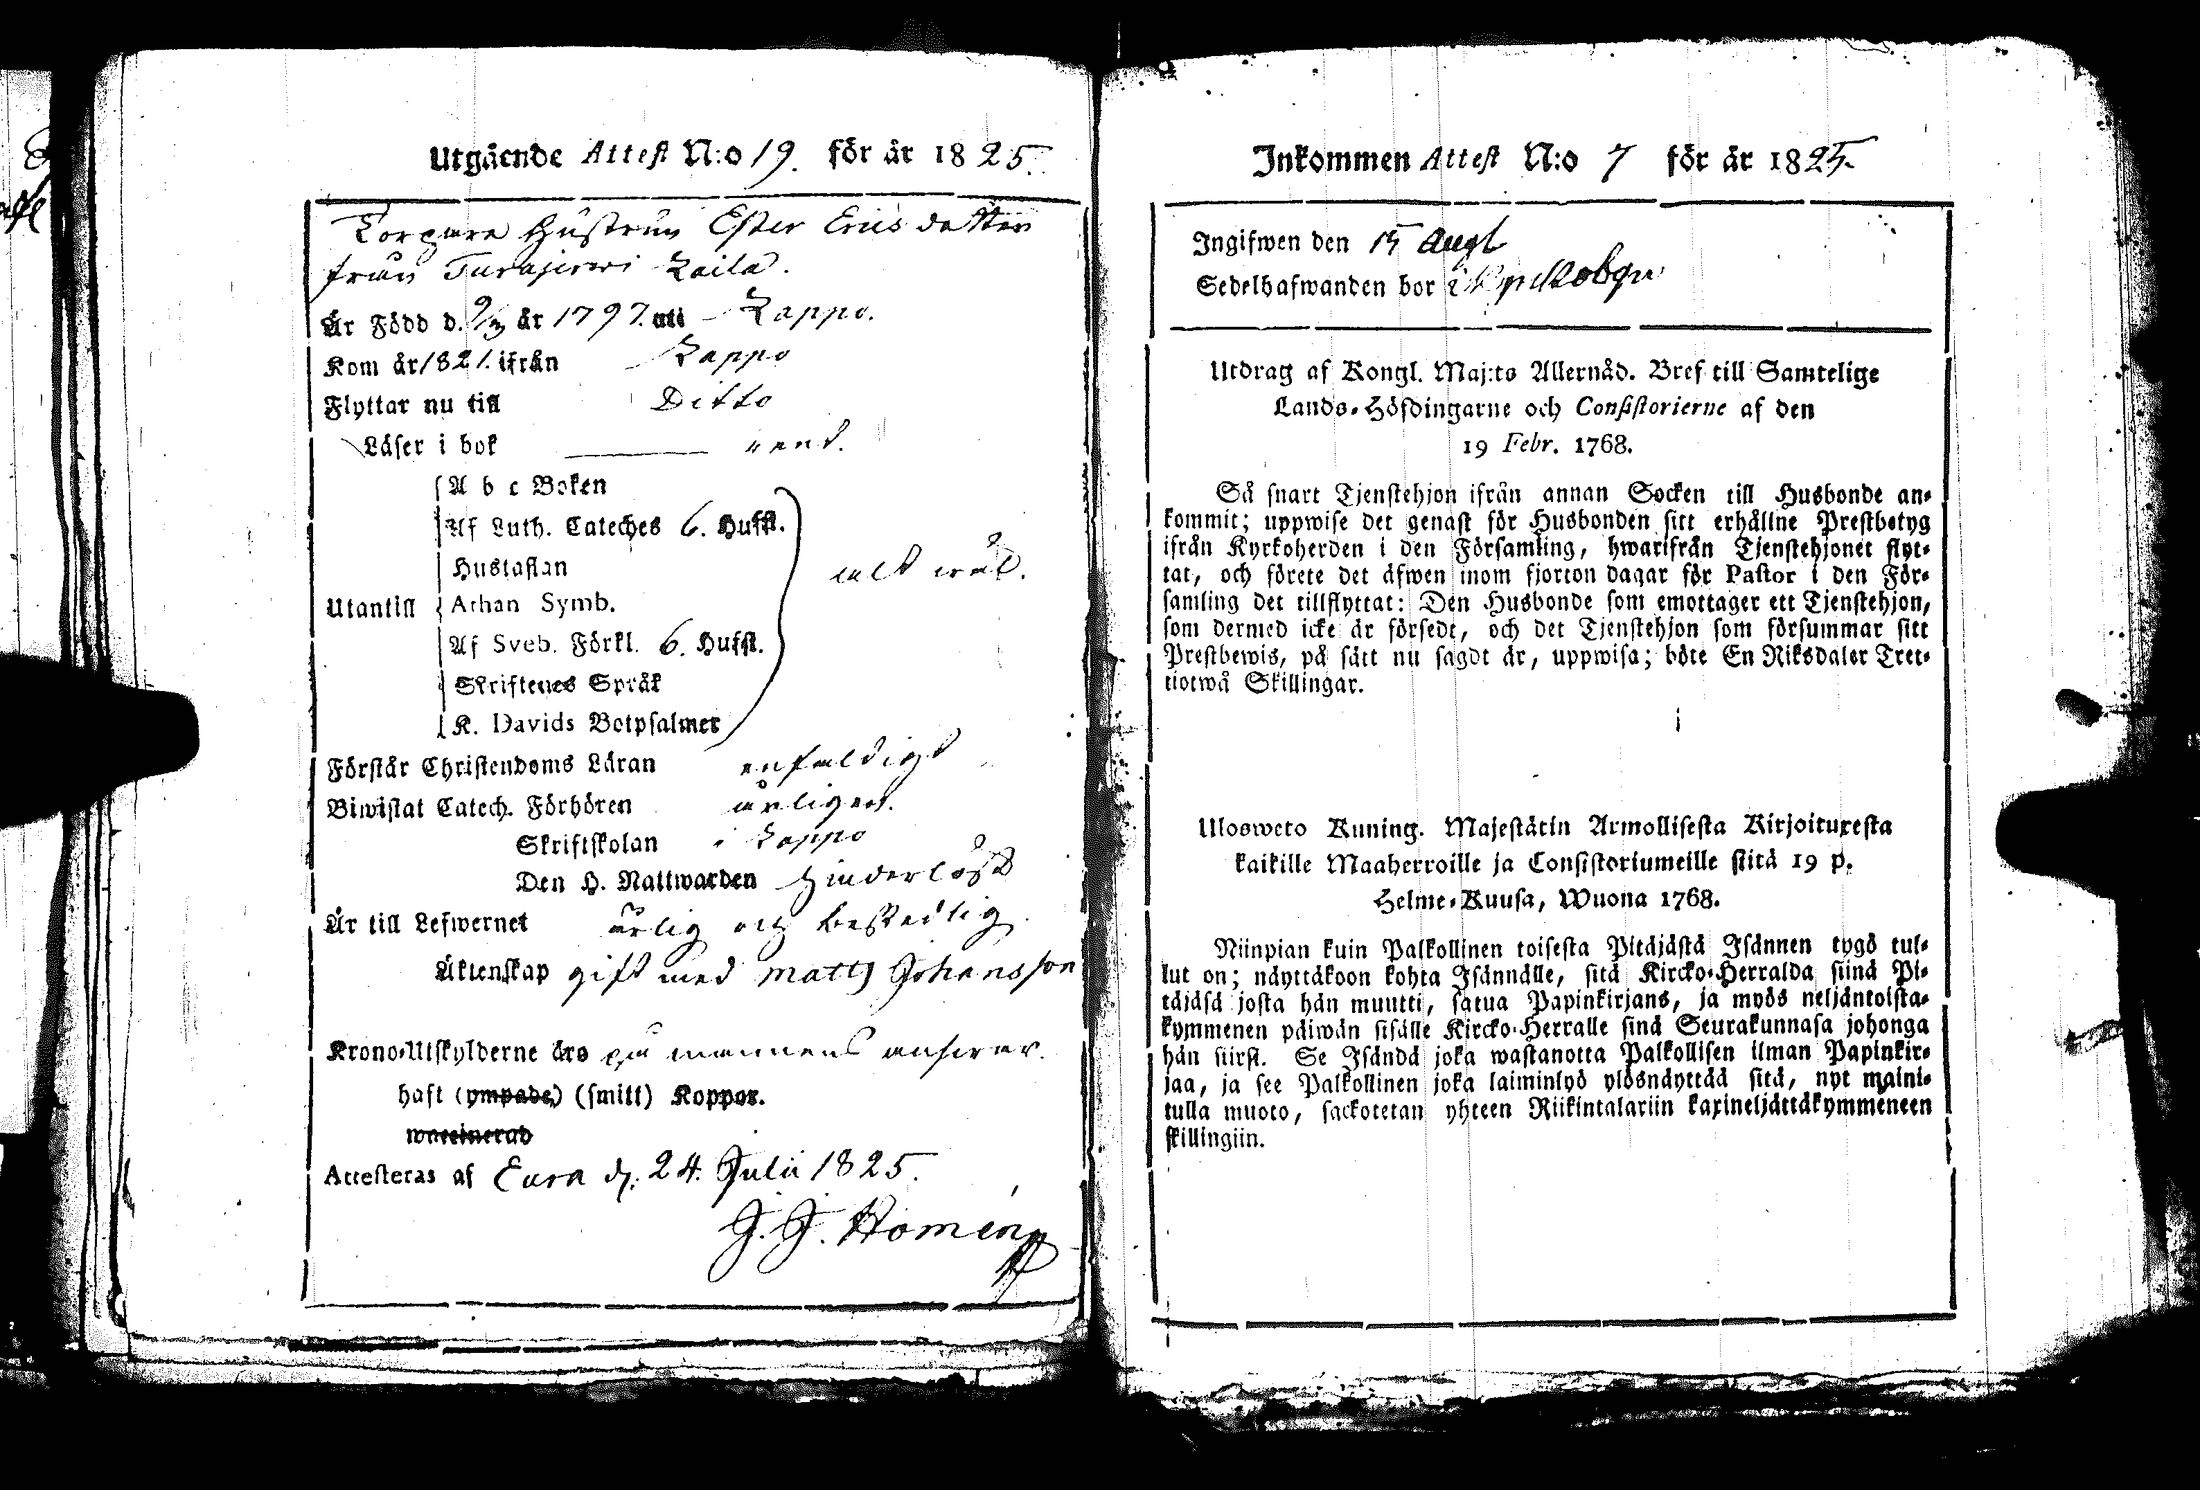 Utgående Attest N:o 19. för år 1825.
Torpare Hustrun Ester Ericsdotter
från Turajerwi Laila.
Är Född d. 9/3 år 1797. uti Lappo.
Kom år 1821. ifrån Lappo
Flyttar nu till Ditto
Läser i bok rent.
A b c Boken
Af Luth. Cateches 6. Hufst.
Hustaflan
alt wäl.
Utantill Athan Symb.
Af Sveb. Förkl. 6. Hufst.
Skriftenes Språk
K. Davids Botpsalmer
Förstår Christendoms Läran enfaldigt
Biwistat Catech. Förhören årligen.
Skriftskolan i Lappo
Den H. Nattwarden Hinderlöst
Är till Lefwernet ärlig och beskedlig
Äktenskap gift med Matts Johansson
Krono-Utskylderne äro på mannens answar.
haft (ympade) (smitt) Koppor.
waccinerad
Attesteras af Eura d. 24. Julii 1825.
J. J. Homén
Inkommen Attest N:o 7 för år 1825.
Ingifwen den 15 Augt
Sedelhafwanden bor i
Utdrag af Kongl. Maj:ts Allernåd. Bref till Samtelige
Lands-Höfdingarne och Consistorierne af den
19 Febr. 1768.
Så snart Tjenstehjon ifrån annan Socken till Husbonde an-
kommit; uppwise det genast för Husbonden sitt erhållne Prestbetyg
ifrån Kyrkoherden i den Församling, hwarifrån Tjenstehjonet flyt-
tat, och förete det äfwen inom fjorton dagar för Pastor i den För-
samling det tillflyttat: Den Husbonde som emottager ett Tjenstehjon,
som dermed icke är försedt, och det Tjenstehjon som försummar sitt
Prestbewis, på sätt nu sagdt är, uppwisa; böte En Riksdaler Tret-
tiotwå Skillingar.
Ulosweto Kuning. Majestätin Armollisesta Kirjoituxesta
kaikille Maaherroille ja Consistoriumeille siitä 19 p.
Helme-Kuusa, Wuona 1768.
Niinpian kuin Palkollinen toisesta Pitäjästä Isännen tygö tul-
lut on; näyttäkoon kohta Isännälle, sitä Kircko-Herralda siinä Pi-
täjäsä josta hän muutti, saatua Papinkirjans, ja myös neljäntoista-
kymmenen päiwän sisälle Kircko-Herralle sinä Seurakunnasa johonga
hän siirsi. Se Isändä joka wastanotta Palkollisen ilman Papinkir-
jaa, ja see Palkollinen joka laiminlyö ylösnäyttää sitä, nyt maini-
tulla muoto, sackotetan yhteen Riikintalariin kaxineljättäkymmeneen
skillingiin.